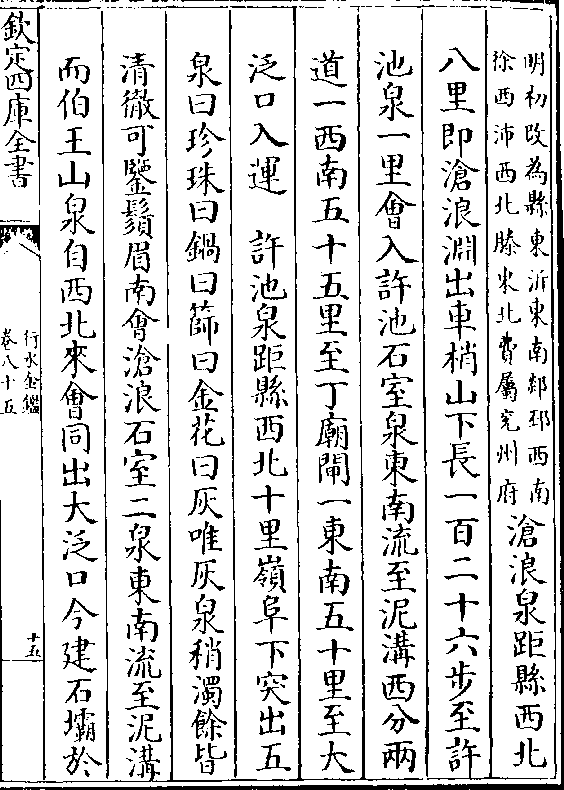 明初改為縣東沂東南郯邳西南
徐西沛西北滕米北費屬兗州府
滄浪泉距縣西北
八里即滄浪淵出車梢山下長一百二十六步至許
池泉一里會入許池石室泉東南流至泥溝西分兩
道一西南五十五里至丁廟閘一東南五十里至大
泛口入運　許池泉距縣西北十里嶺阜下突出五
泉曰珍珠曰鍋曰篩曰金花曰灰唯灰泉稍濁餘皆
清徹可鑒鬚眉南會滄浪石室二泉東南流至泥溝
而伯王山泉自西北來會同出大泛口今建石壩於
欽定四庫全書
行水金鑑
卷八十五
十五